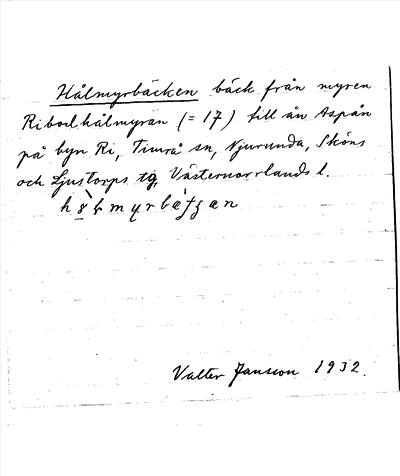 Hålmyrbäcken bäck från myren
Ribodhålmyran (= 17) till ån Aspån
på byn Ri, Timrå sn, Njurunda, Sköns
och Ljustorps tg, Västernorrlands l.
Valter Jansson 1932.